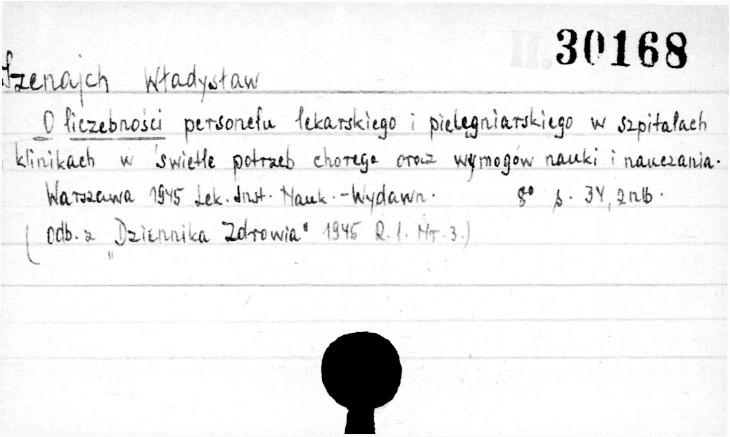 30168
Szenajch Władysław
O liczebności personelu lekarskiego i pielęgniarskiego w szpitalach
klinikach w świetle potrzeb chorego oraz wymogów nauki i nauczania.
Warszawa 1945 Lek. Inst. Nauk.-Wydawn. 8° s. 34, 2 nlb.
(odb. z "Dziennika Zdrowia" 1945 R. 1. Nr. 3.)